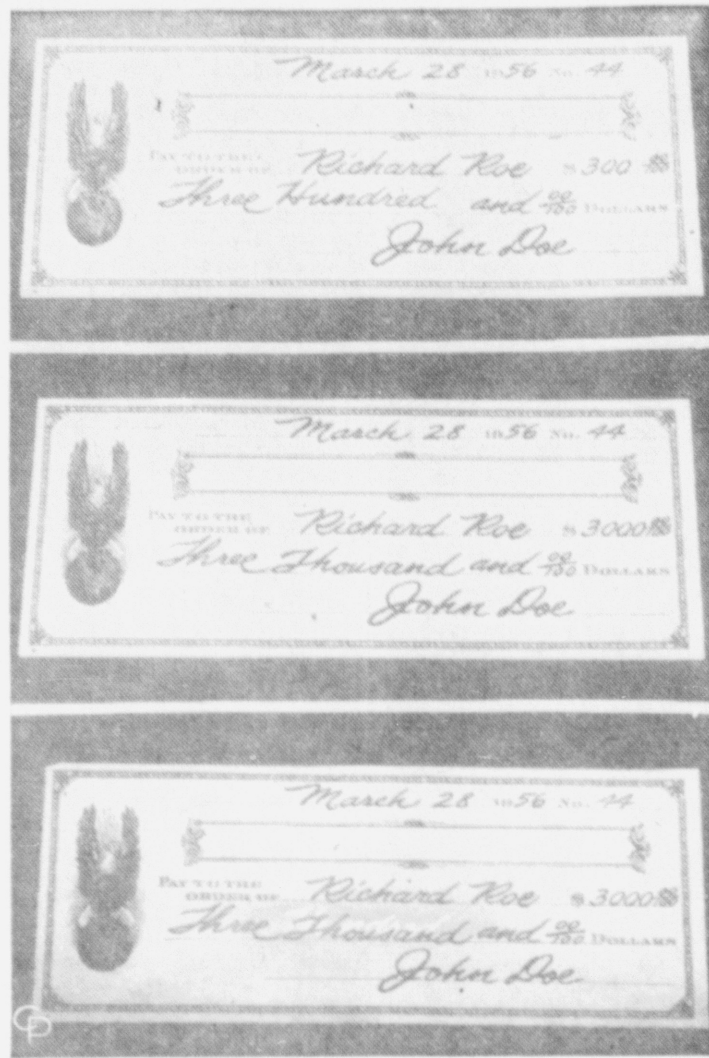 March 28 1956 No. 44
PAY TO THE
ORDER OF Richard Roe $ 300 00/100
Three Hundred and 00/100 DOLLARS
John Doe
March 28 1956 No. 44
PAY TO THE
ORDER OF Richard Roe $ 3000 00/100
Three Thousand and 00/100 DOLLARS
John Doe
March 28 1956 No. 44
PAY TO THE
ORDER OF Richard Roe $ 3000 00/100
Three Thousand and 00/100 DOLLARS
John Doe
CP